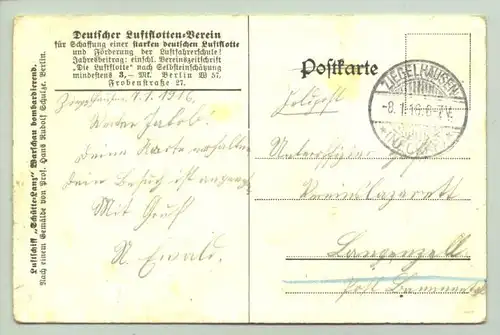 Deutscher Luftflotten-Verein
für Schaffung einer starken deutschen Luftflotte
und Förderung der Luftfahrerschule!
Jahresbeitrag: einschl. Vereinszeitschrift
"Die Luftflotte" nach Selbsteinschätzung
mindestens 3,— Mk. Berlin W 57,
Frobenstraße 27.
Luftschiff „Schütte-Lanz" Warschau bombardierend.
Nach einem Gemälde von Prof. Hans Rudolf Schulze, Berlin.
Postkarte
ZIEGELHAUSEN
Feldpost
Werter Jakob!
Deine Karte erhalten
dein Besuch ist angenehm
Mit Gruß
N. Ewald.
Unteroffizier
Vereins Lazarett
Langenzell
Post Bammental